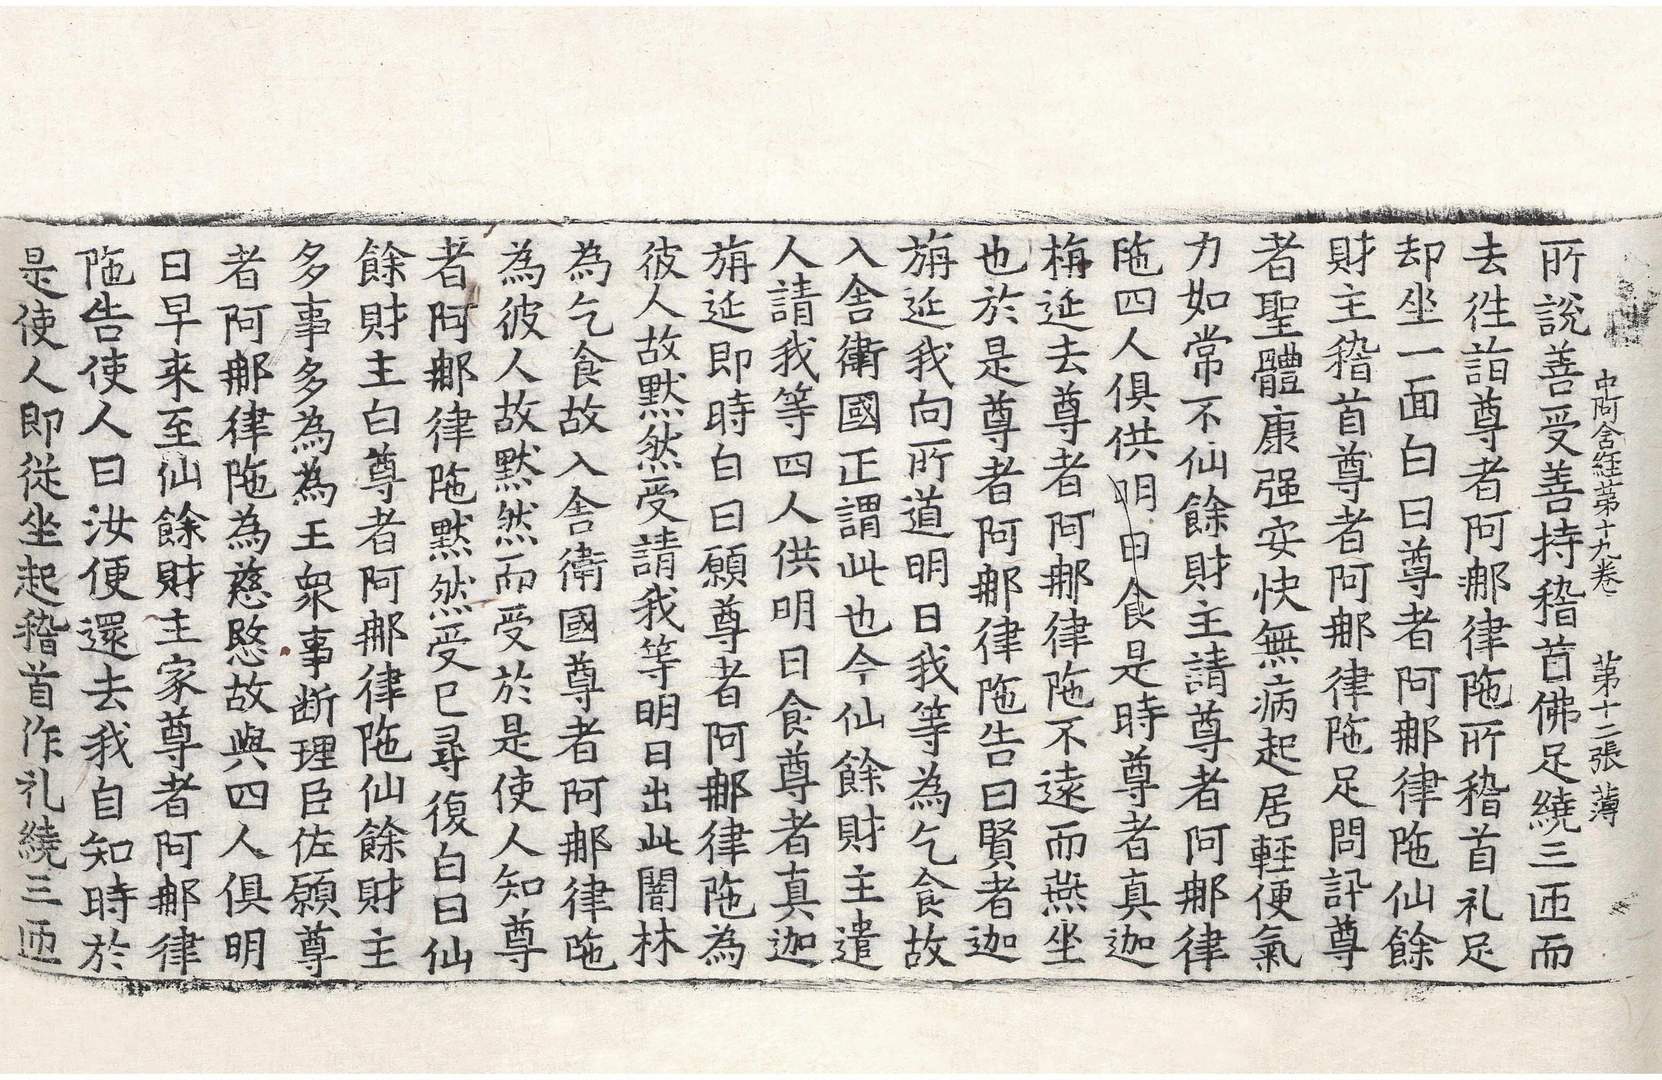 中阿含經苐十九卷 苐十二張 薄
所說善受善持稽首佛足繞三匝而
去徃詣尊者阿那律陁所稽首礼足
却坐一面白曰尊者阿那律陁仙餘
財主稽首尊者阿那律陁足問訊尊
者聖體康强安快無病起居輕便氣
力如常不仙餘財主請尊者阿那律
陁四人俱供明日食是時尊者真迦
旃延去尊者阿那律陁不遠而燕坐
也於是尊者阿那律陁告曰賢者迦
旃延我向所道明日我等為乞食故
入舍衛國正謂此也今仙餘財主遣
人請我等四人供明日食尊者真迦
旃延即時白曰願尊者阿那律陁為
彼人故默然受請我等明日出此闇林
為乞食故入舍衛國尊者阿那律陁
為彼人故默然而受於是使人知尊
者阿那律陁默然受已尋復白曰仙
餘財主白尊者阿那律陁仙餘財主
多事多為為王衆事断理臣佐願尊
者阿那律陁為慈愍故與四人俱明
日早来至仙餘財主家尊者阿那律
陁告使人曰汝便還去我自知時於
是使人即従坐起稽首作礼繞三匝